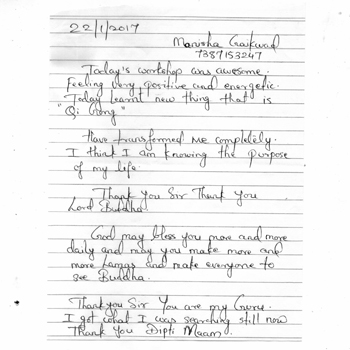 22/1/2017
Manisha Gaikwad
7387153247
Today's workshop was awesome.
Feeling very positive and energetic.
Today learnt new thing that is
"Qi Gong"
Have transformed me completely.
I think I am knowing the purpose
of my life
Thank you Sir Thank you
Lord Buddha
God may bless you more and more
daily and may you make more and
more Lamas and make everyone to
see Buddha.
Thank you Sir You are my Guru.
I got what I was searching still now
Thank You Dipti Maam.